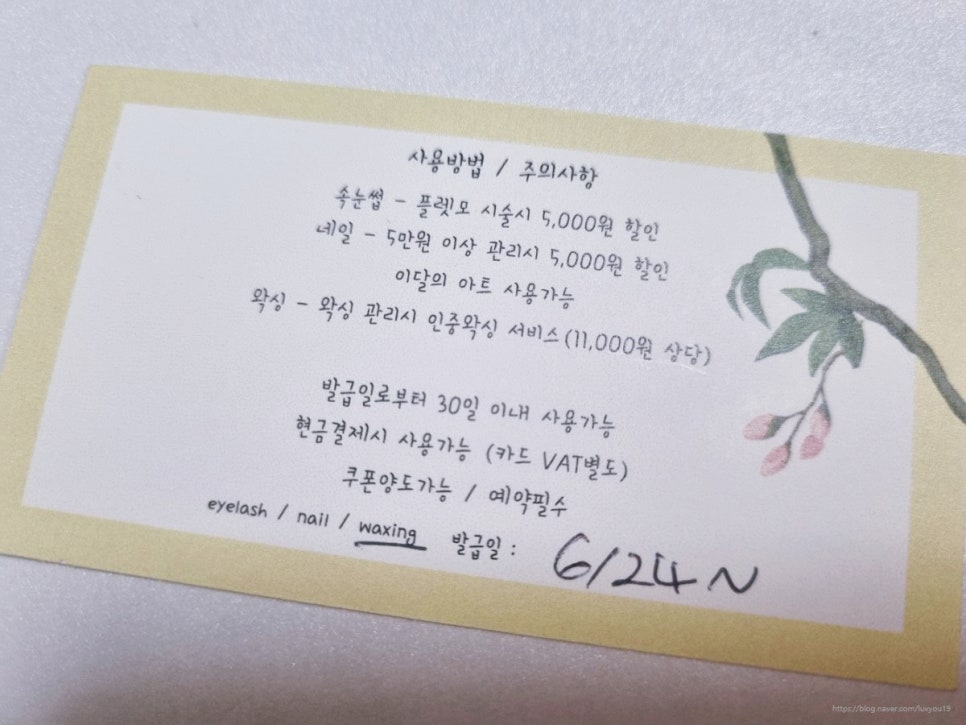 사용방법 / 주의사항
속눈썹 - 플렛모 시술시 5,000원 할인
네일 - 5만원 이상 관리시 5,000원 할인
이달의 아트 사용가능
왁싱 - 왁싱 관리시 인중왁싱 서비스(11,000원 상당)
발급일로부터 30일 이내 사용가능
현금결제시 사용가능 (카드 VAT별도)
쿠폰양도가능 / 예약필수
eyelash / nail / waxing 발급일 : 6/24 ~
https://blog.naver.com/luvyou19